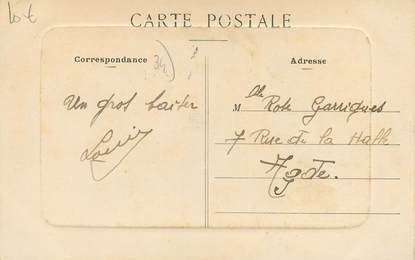 10 €
CARTE POSTALE
Correspondance
34
Adresse
Un gros baiser
Louis
M lle Rose Garrigues
7 Rue de la Halle
Agde.